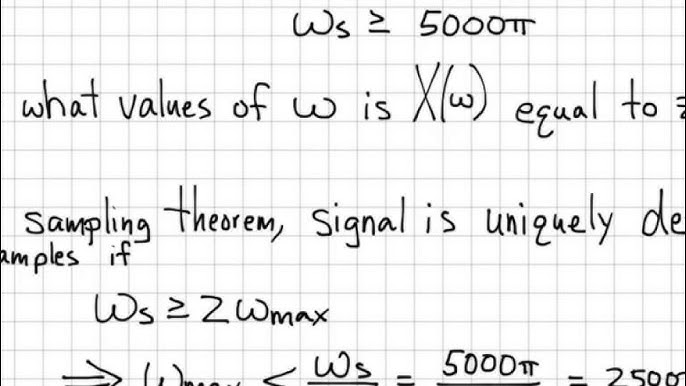 ωs ≥ 5000π
what values of ω is X(ω) equal to
sampling theorem, signal is uniquely de
amples if
ωs ≥ 2ωmax
⇒ ωmax < ωs = 5000π = 2500π